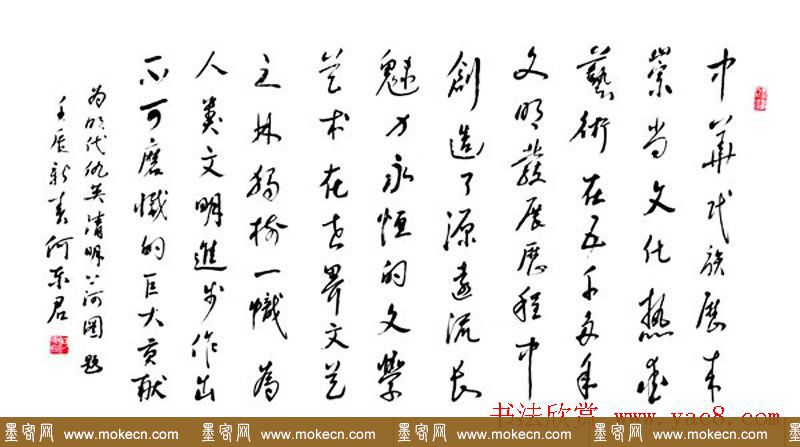 中華民族歷来
崇尚文化热爱
藝術在五千多年
文明發展歷程中
創造了源遠流长
魅力永恒的文學
艺术在世界文艺
之林独樹一幟為
人類文明進步作出
不可磨滅的巨大贡献
为明代仇英清明上河圖题
壬辰新春何东君
书法欣赏 www.yac8.com
墨客网 www.mokecn.com 墨客网 www.mokecn.com 墨客网 www.mokecn.com 墨客网 www.mokecn.com